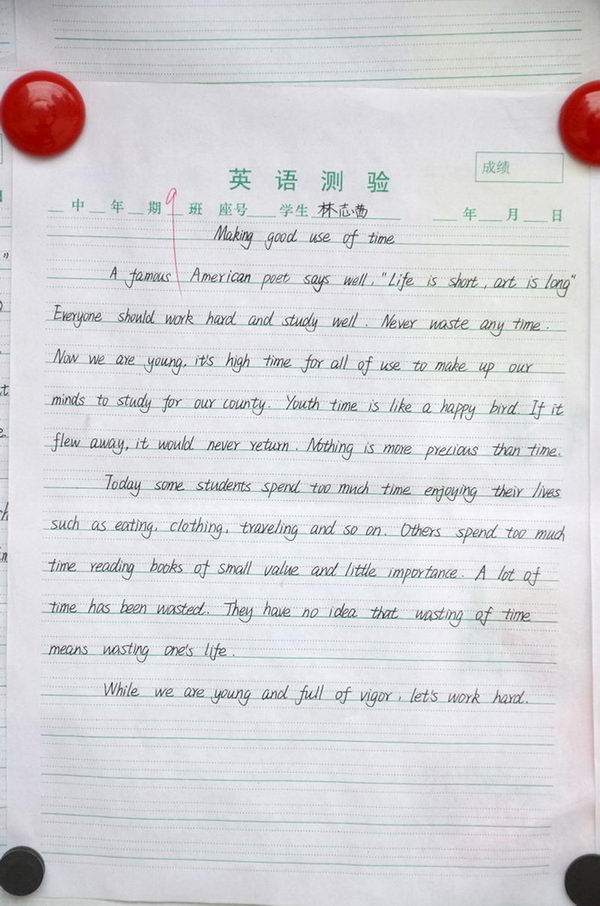 英语测验
成绩
中 年 期 9 班 座号 学生 林志茜 年 月 日
Making good use of time
A famous American poet says well, "Life is short, art is long"
Everyone should work hard and study well. Never waste any time.
Now we are young, it's high time for all of use to make up our
minds to study for our county. Youth time is like a happy bird. If it
flew away, it would never return. Nothing is more precious than time.
Today some students spend too much time enjoying their lives
such as eating, clothing, traveling and so on. Others spend too much
time reading books of small value and little importance. A lot of
time has been wasted. They have no idea that wasting of time
means wasting one's life.
While we are young and full of vigor, let's work hard.